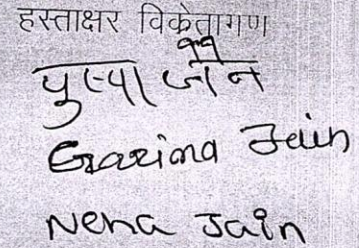 हस्ताक्षर विक्रेतागण
पुष्पा जैन
Garima Jain
Neha Jain